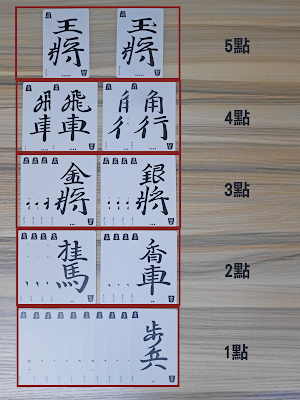 王將 玉將 5點
飛車 飛車 角行 角行 4點
金將 銀將 3點
桂馬 香車 2點
步兵 1點